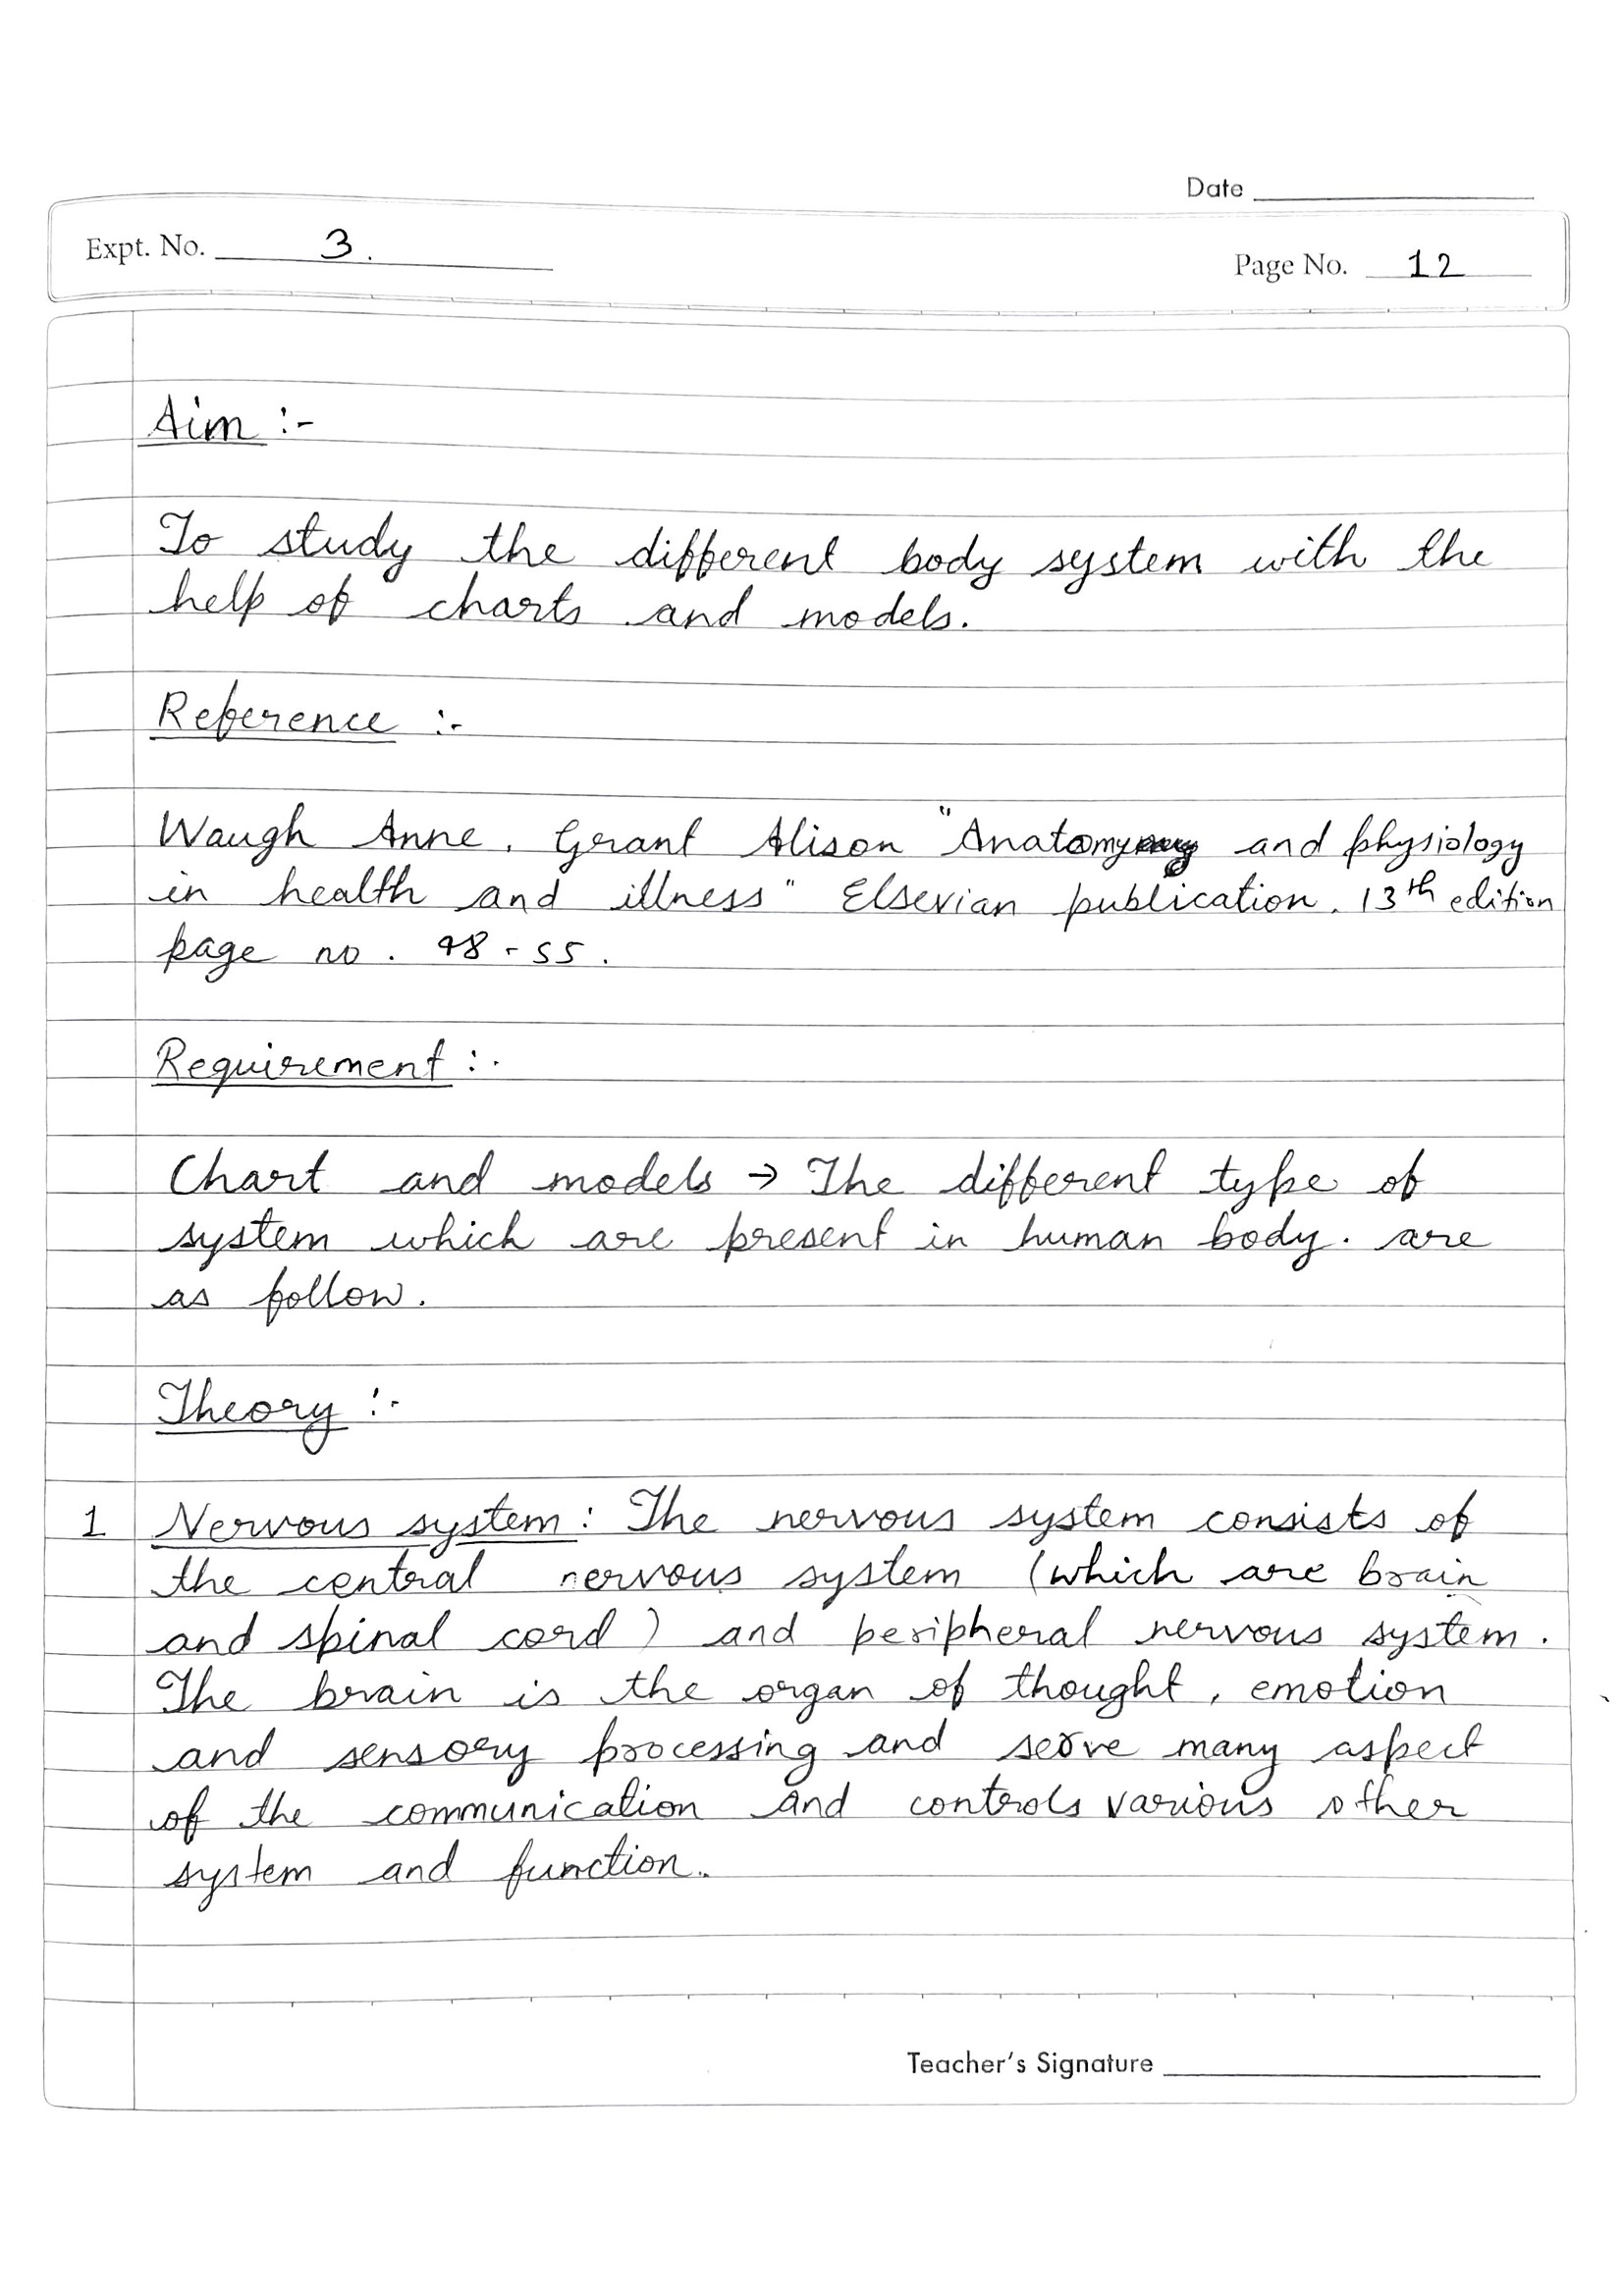 Date
Expt. No. 3.
Page No. 12
Aim :-
To study the different body system with the
help of charts and models.
Reference :-
Waugh Anne. Grant Alison "Anatomy and physiology
in health and illness" Elsevian publication. 13th edition
page no. 48-55.
Requirement :-
Chart and models → The different type of
system which are present in human body. are
as follow.
Theory :-
1 Nervous system: The nervous system consists of
the central nervous system (which are brain
and spinal cord) and peripheral nervous system.
The brain is the organ of thought, emotion
and sensory processing and serve many aspect
of the communication and controls various other
system and function.
Teacher's Signature